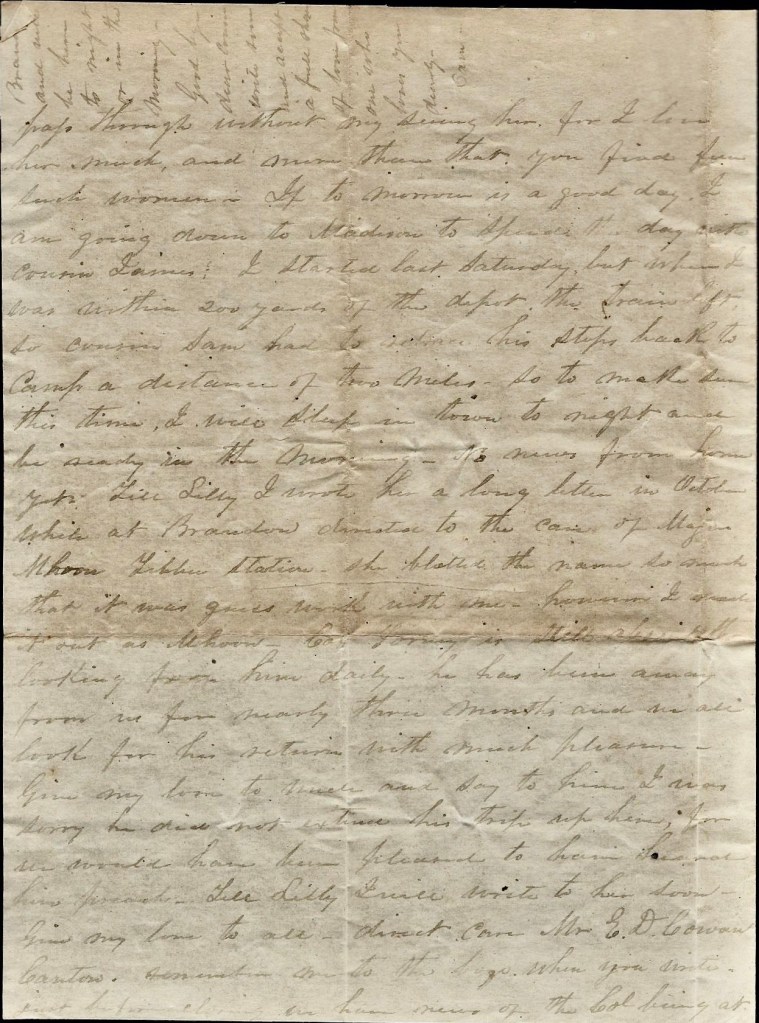 pass through without my seeing her. for I love
her much, and more than that, you find few
such women - If to morrow is a good day, I
am going down to Madison to spend the day with
cousin James; I started last Saturday, but when I
was within 200 yards of the depot the Train left,
so cousin Sam had to retrace his steps back to
Camp a distance of two miles - so to make sure
this time, I will sleep in town to night and
be ready in the morning - no news from home
yet. Tell Lilly I wrote her a long letter in October
while at Brandon directed to the care of Major
Mhoon Tibbee Station - she blotted the name so much
that it was guess work with me - however I made
it out as Mhoon - Col is still
looking for him daily - he has been away
from us for nearly three months and we all
look for his return with much pleasure -
Give my love to and say to him I was
sorry he did not extend his trip up here, for
we would have been pleased to have heard
him preach - Tell Lilly I will write to her soon -
Give my love to all - direct care Mr E. D. Cowan
Canton. remember me to the boys when you write -
just before closing we have news of the Col being at
Brandon
and will
be here
to night
or in the
morning -
Good by
dear
write soon
and accept
a full share
of love from
one who
loves you
dearly -
Sam -